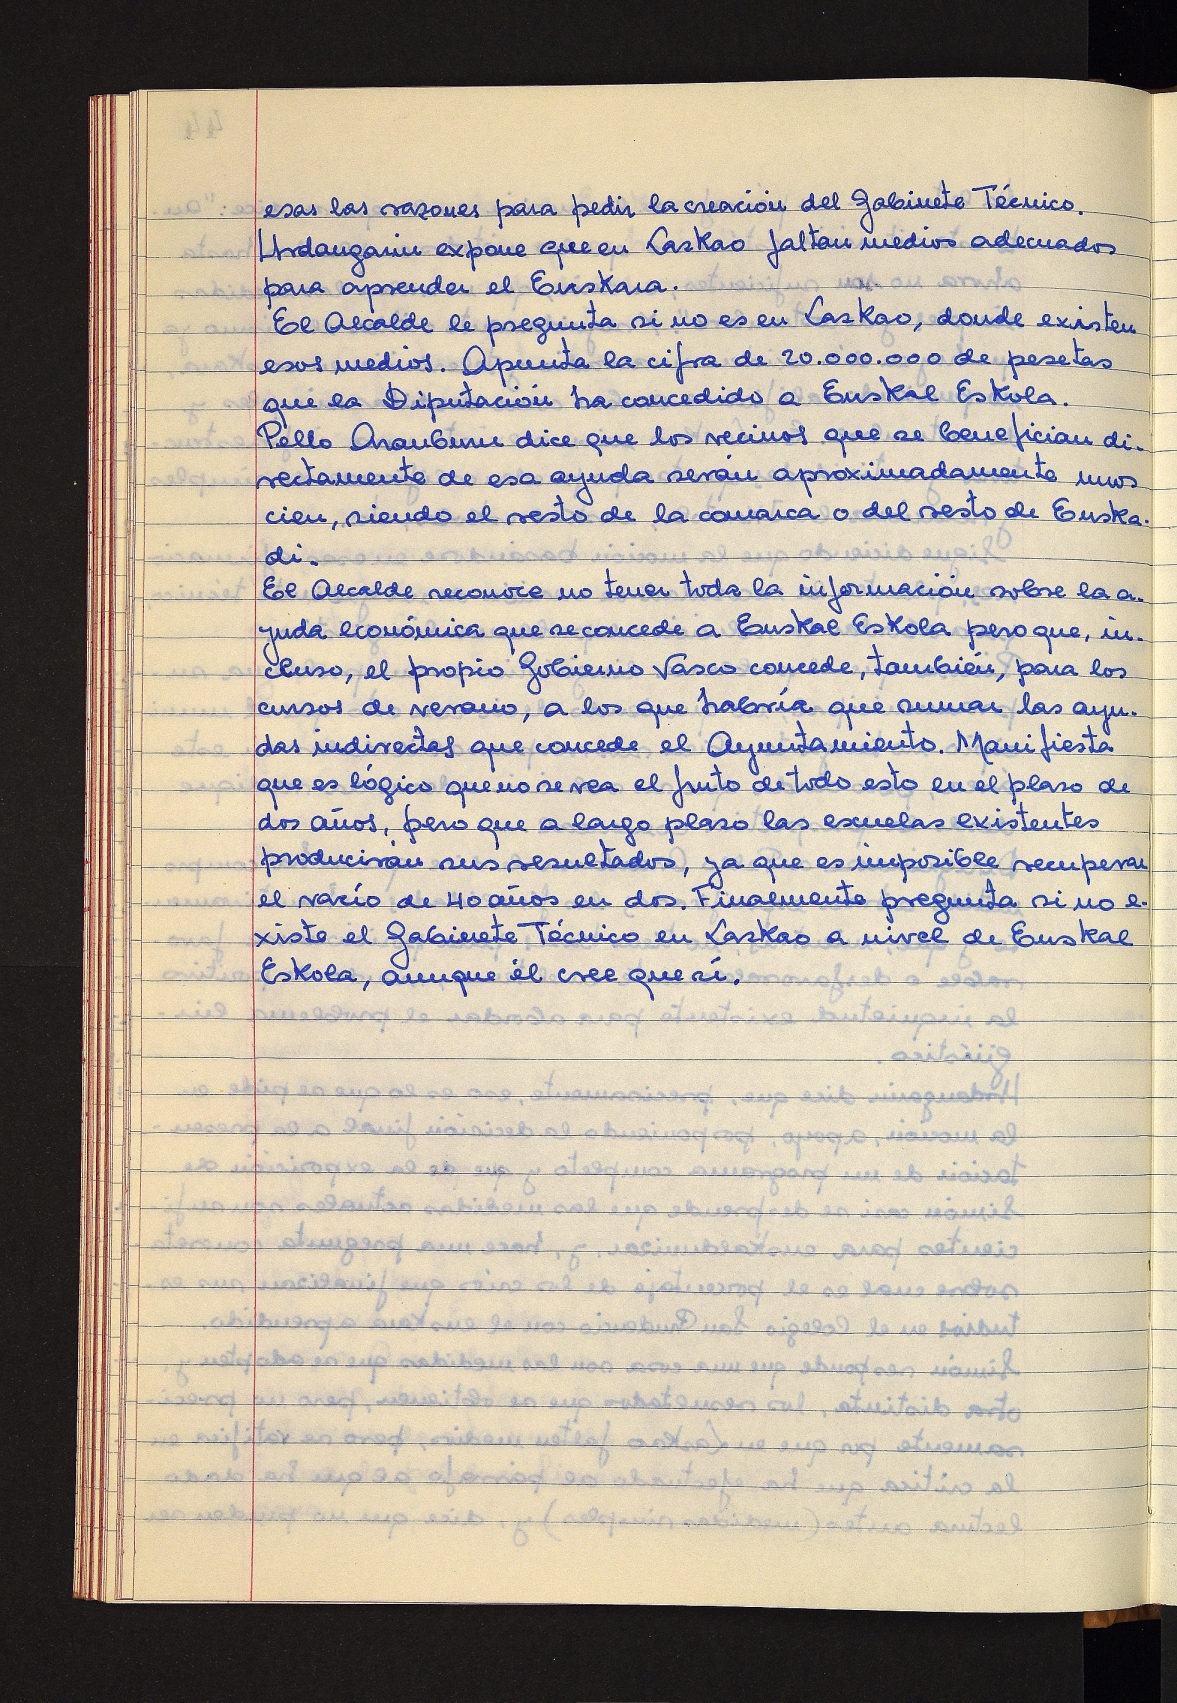 esas las razones para pedir la creación del Gabinete Técnico.
Urdangarin expone que en Lazkao faltan medios adecuados
para aprender el Euskara.
El Alcalde le pregunta si no es en Lazkao, donde existen
esos medios. Apunta la cifra de 20.000.000 de pesetas
que la Diputación ha concedido a Euskal Eskola.
Pello Aranburu dice que los vecinos que se benefician di-
rectamente de esa ayuda serán aproximadamente unos
cien, siendo el resto de la comarca o del resto de Euska-
di.
El Alcalde reconoce no tener toda la información sobre la a-
yuda económica que se concede a Euskal Eskola pero que, in-
cluso, el propio Gobierno Vasco concede, también, para los
cursos de verano, a los que habría que sumar las ayu-
das indirectas que concede el Ayuntamiento. Manifiesta
que es lógico que no se vea el fruto de todo esto en el plazo de
dos años, pero que a largo plazo las escuelas existentes
producirán sus resultados, ya que es imposible recuperar
el vacío de 40 años en dos. Finalmente pregunta si no e-
xiste el Gabinete Técnico en Lazkao a nivel de Euskal
Eskola, aunque él cree que sí.